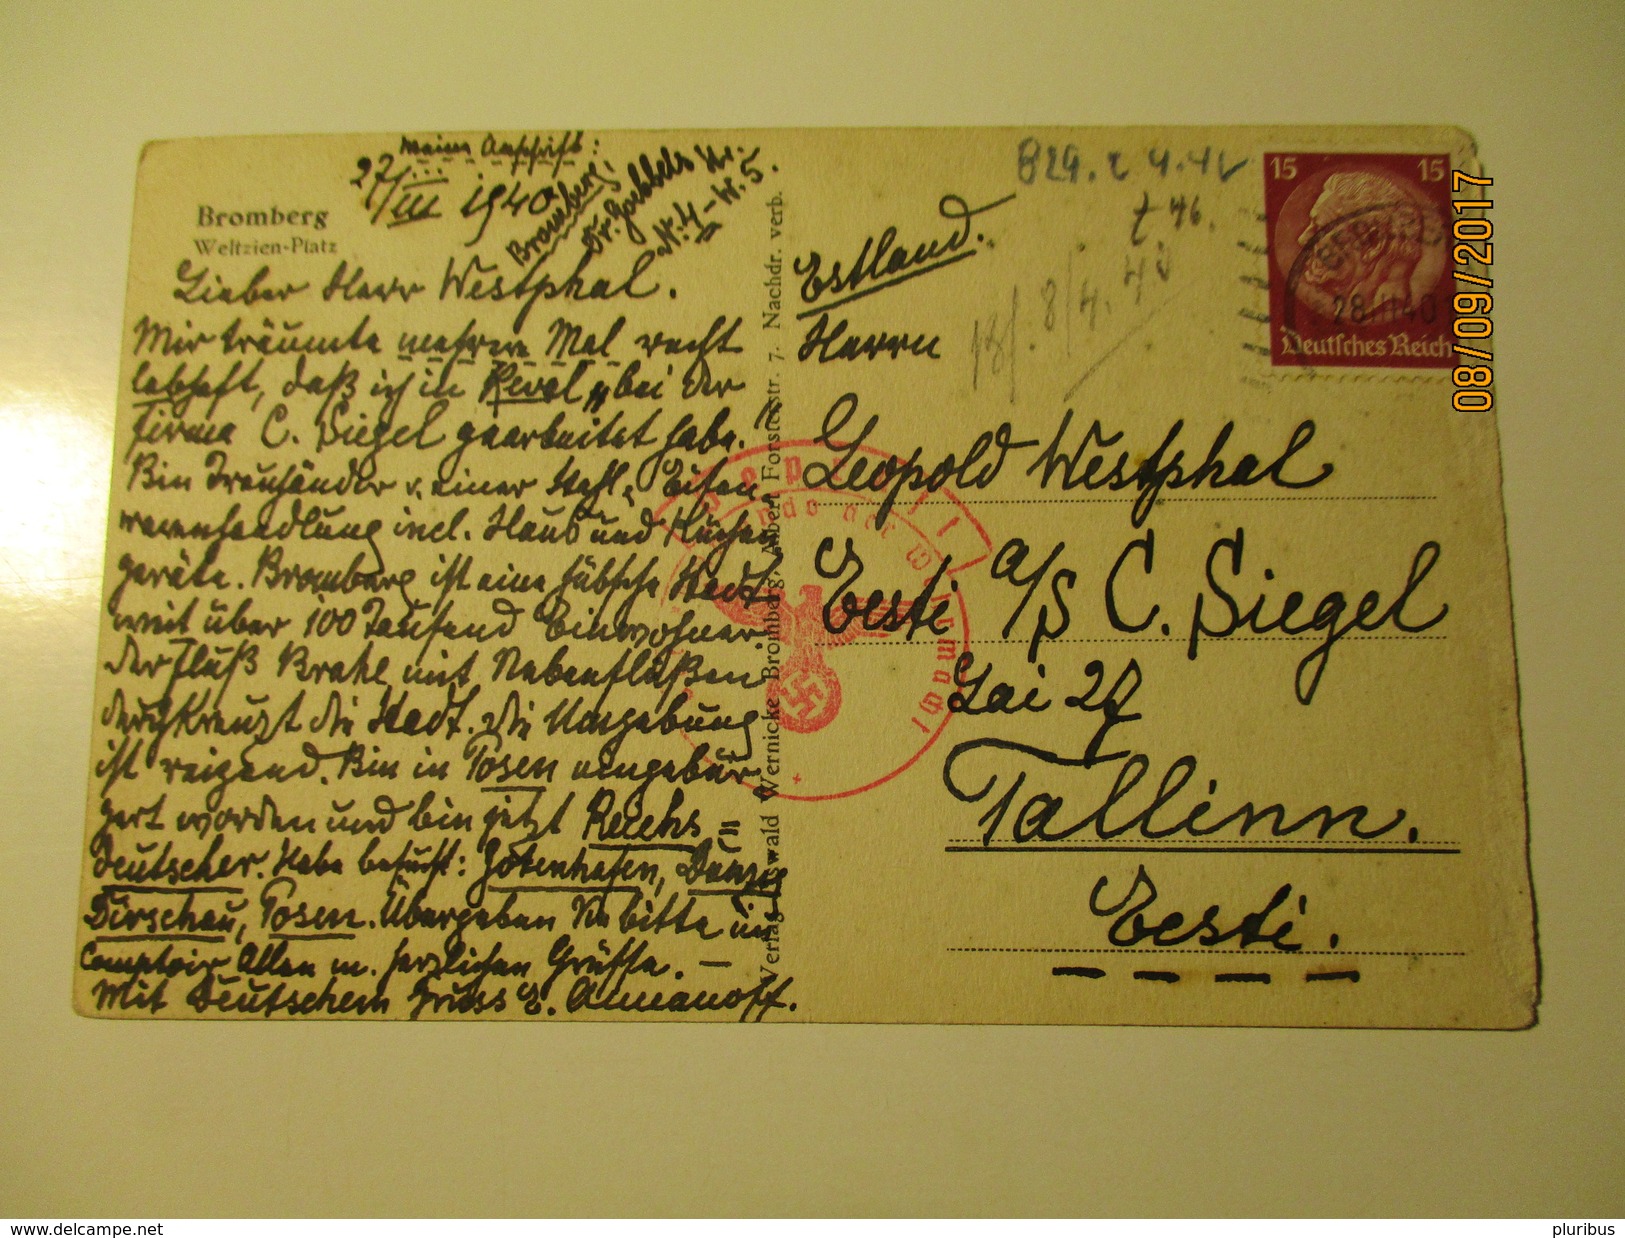 Meine Anschrift:
27/III 1940
Bromberg,
Dr. Goebbels Str.
Nr. 4 - W. 5.
Bromberg
Weltzien-Platz
Lieber Herr Westphal.
Mir träumte mehrere Mal recht
lebhaft, daß ich in Reval bei der
Firma C. Siegel gearbeitet habe.
Bin Treuhänder v. einer Stahl, Eisen
warenhandlung incl. Haus und Küchen
geräte. Bromberg ist eine hübsche Stadt
mit über 100 Taufend Einwohner
der Fluß Brahe mit Nebenflüßen
durchkreuzt die Stadt. Die Umgebung
ist reizend. Bin in Posen eingebür
gert worden und bin jetzt Reichs=
deutscher. Habe besucht: Gotenhafen, Danzig
Dirschau, Posen. Übergeben Sie bitte im
Comptoir Allen m. herzlichen Grüsse. —
Mit Deutschem Gruss E. Ammanoff.
Verlag Oswald Wernicke, Bromberg, Albert Forsterstr. 7. Nachdr. verb.
Estland.
Herrn
Leopold Westphal
Eesti a/s C. Siegel
Lai 27
Tallinn.
Eesti.
8/4. 40
15 15
Deutsches Reich
28.III.40
08/09/2017
www.delcampe.net
pluribus